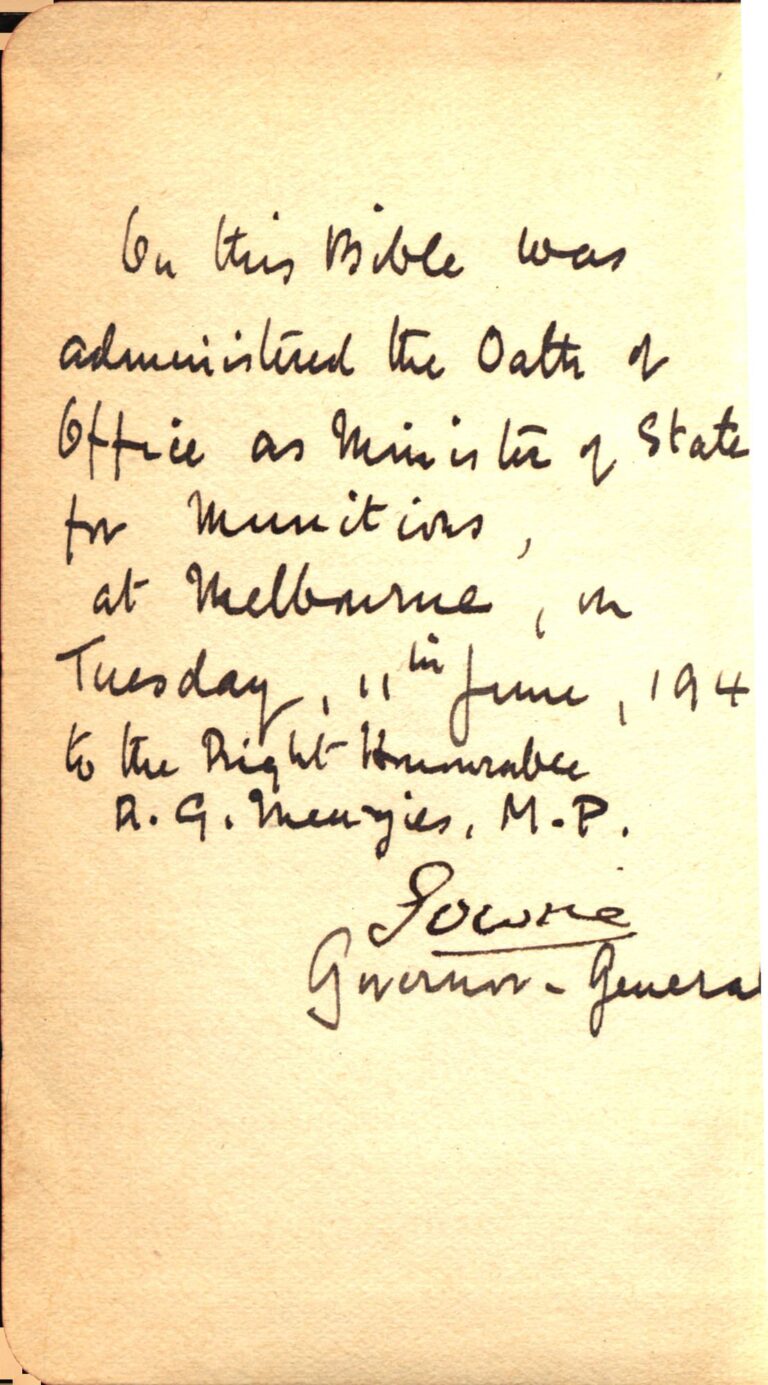 On this Bible was
administered the Oath of
Office as Minister of State
for Munitions,
at Melbourne, on
Tuesday, 11th June, 194
to the Right Honourable
R. G. Menzies, M.P.
Gowrie
Governor-General